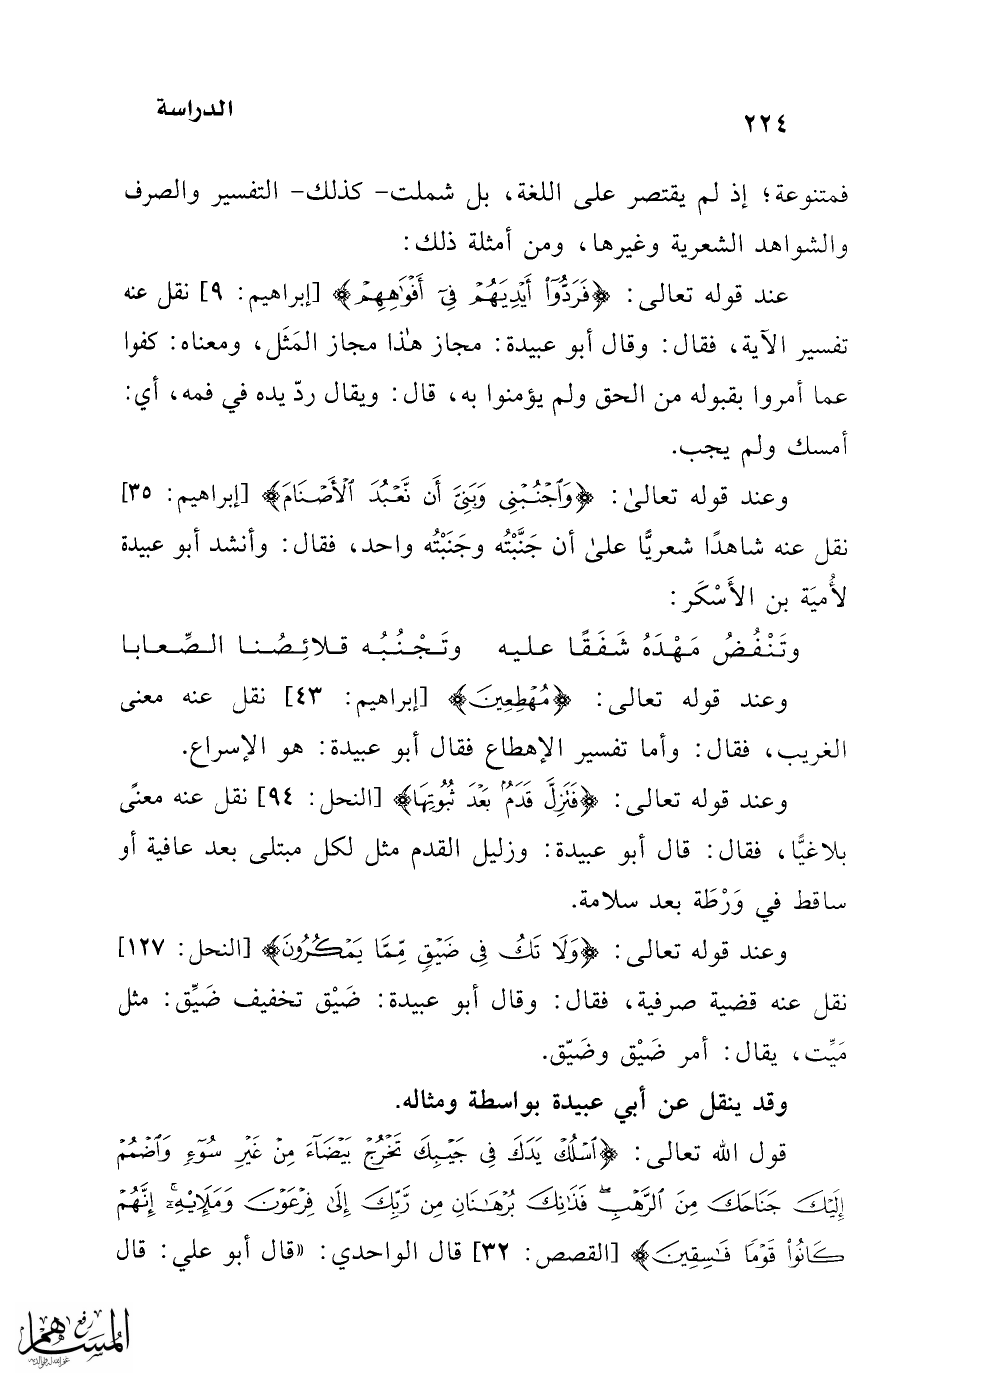 الدراسة
٢٢٤
فمتنوعة؛ إذ لم يقتصر على اللغة، بل شملت- كذلك- التفسير والصرف
والشواهد الشعرية وغيرها، ومن أمثلة ذلك:
عند قوله تعالى: ﴿فَرَدُّوٓاْ أَيۡدِيَهُمۡ فِيٓ أَفۡوَٰهِهِمۡ﴾ [إبراهيم: ٩] نقل عنه
تفسير الآية، فقال: وقال أبو عبيدة: مجاز هٰذا مجاز المَثَل، ومعناه: كفوا
عما أمروا بقبوله من الحق ولم يؤمنوا به، قال: ويقال ردّ يده في فمه، أي:
أمسك ولم يجب.
وعند قوله تعالىٰ: ﴿وَٱجۡنُبۡنِي وَبَنِيَّ أَن نَّعۡبُدَ ٱلۡأَصۡنَامَ﴾ [إبراهيم: ٣٥]
نقل عنه شاهدًا شعريًّا علىٰ أن جَنَّبْتُه وجَنَبْتُه واحد، فقال: وأنشد أبو عبيدة
لأُميَة بن الأَسْكَر:
وتَنْفُضُ مَهْدَهُ شَفَقًا عليه وتَجْنُبُه قلائِصُنا الصِّعابا
وعند قوله تعالى: ﴿مُهۡطِعِينَ﴾ [إبراهيم: ٤٣] نقل عنه معنى
الغريب، فقال: وأما تفسير الإهطاع فقال أبو عبيدة: هو الإسراع.
وعند قوله تعالى: ﴿فَتَزِلَّ قَدَمُۢ بَعۡدَ ثُبُوتِهَا﴾ [النحل: ٩٤] نقل عنه معنًى
بلاغيًّا، فقال: قال أبو عبيدة: وزليل القدم مثل لكل مبتلى بعد عافية أو
ساقط في وَرْطَة بعد سلامة.
وعند قوله تعالى: ﴿وَلَا تَكُ فِي ضَيۡقٖ مِّمَّا يَمۡكُرُونَ﴾ [النحل: ١٢٧]
نقل عنه قضية صرفية، فقال: وقال أبو عبيدة: ضَيْق تخفيف ضَيِّق: مثل
مَيِّت، يقال: أمر ضَيْق وضَيّق.
وقد ينقل عن أبي عبيدة بواسطة ومثاله.
قول الله تعالى: ﴿ٱسۡلُكۡ يَدَكَ فِي جَيۡبِكَ تَخۡرُجۡ بَيۡضَآءَ مِنۡ غَيۡرِ سُوٓءٖ وَٱضۡمُمۡ
إِلَيۡكَ جَنَاحَكَ مِنَ ٱلرَّهۡبِۖ فَذَٰنِكَ بُرۡهَٰنَانِ مِن رَّبِّكَ إِلَىٰ فِرۡعَوۡنَ وَمَلَإِيْهِۦٓۚ إِنَّهُمۡ
كَانُواْ قَوۡمٗا فَٰسِقِينَ﴾ [القصص: ٣٢] قال الواحدي: «قال أبو علي: قال
رفع
المساهم